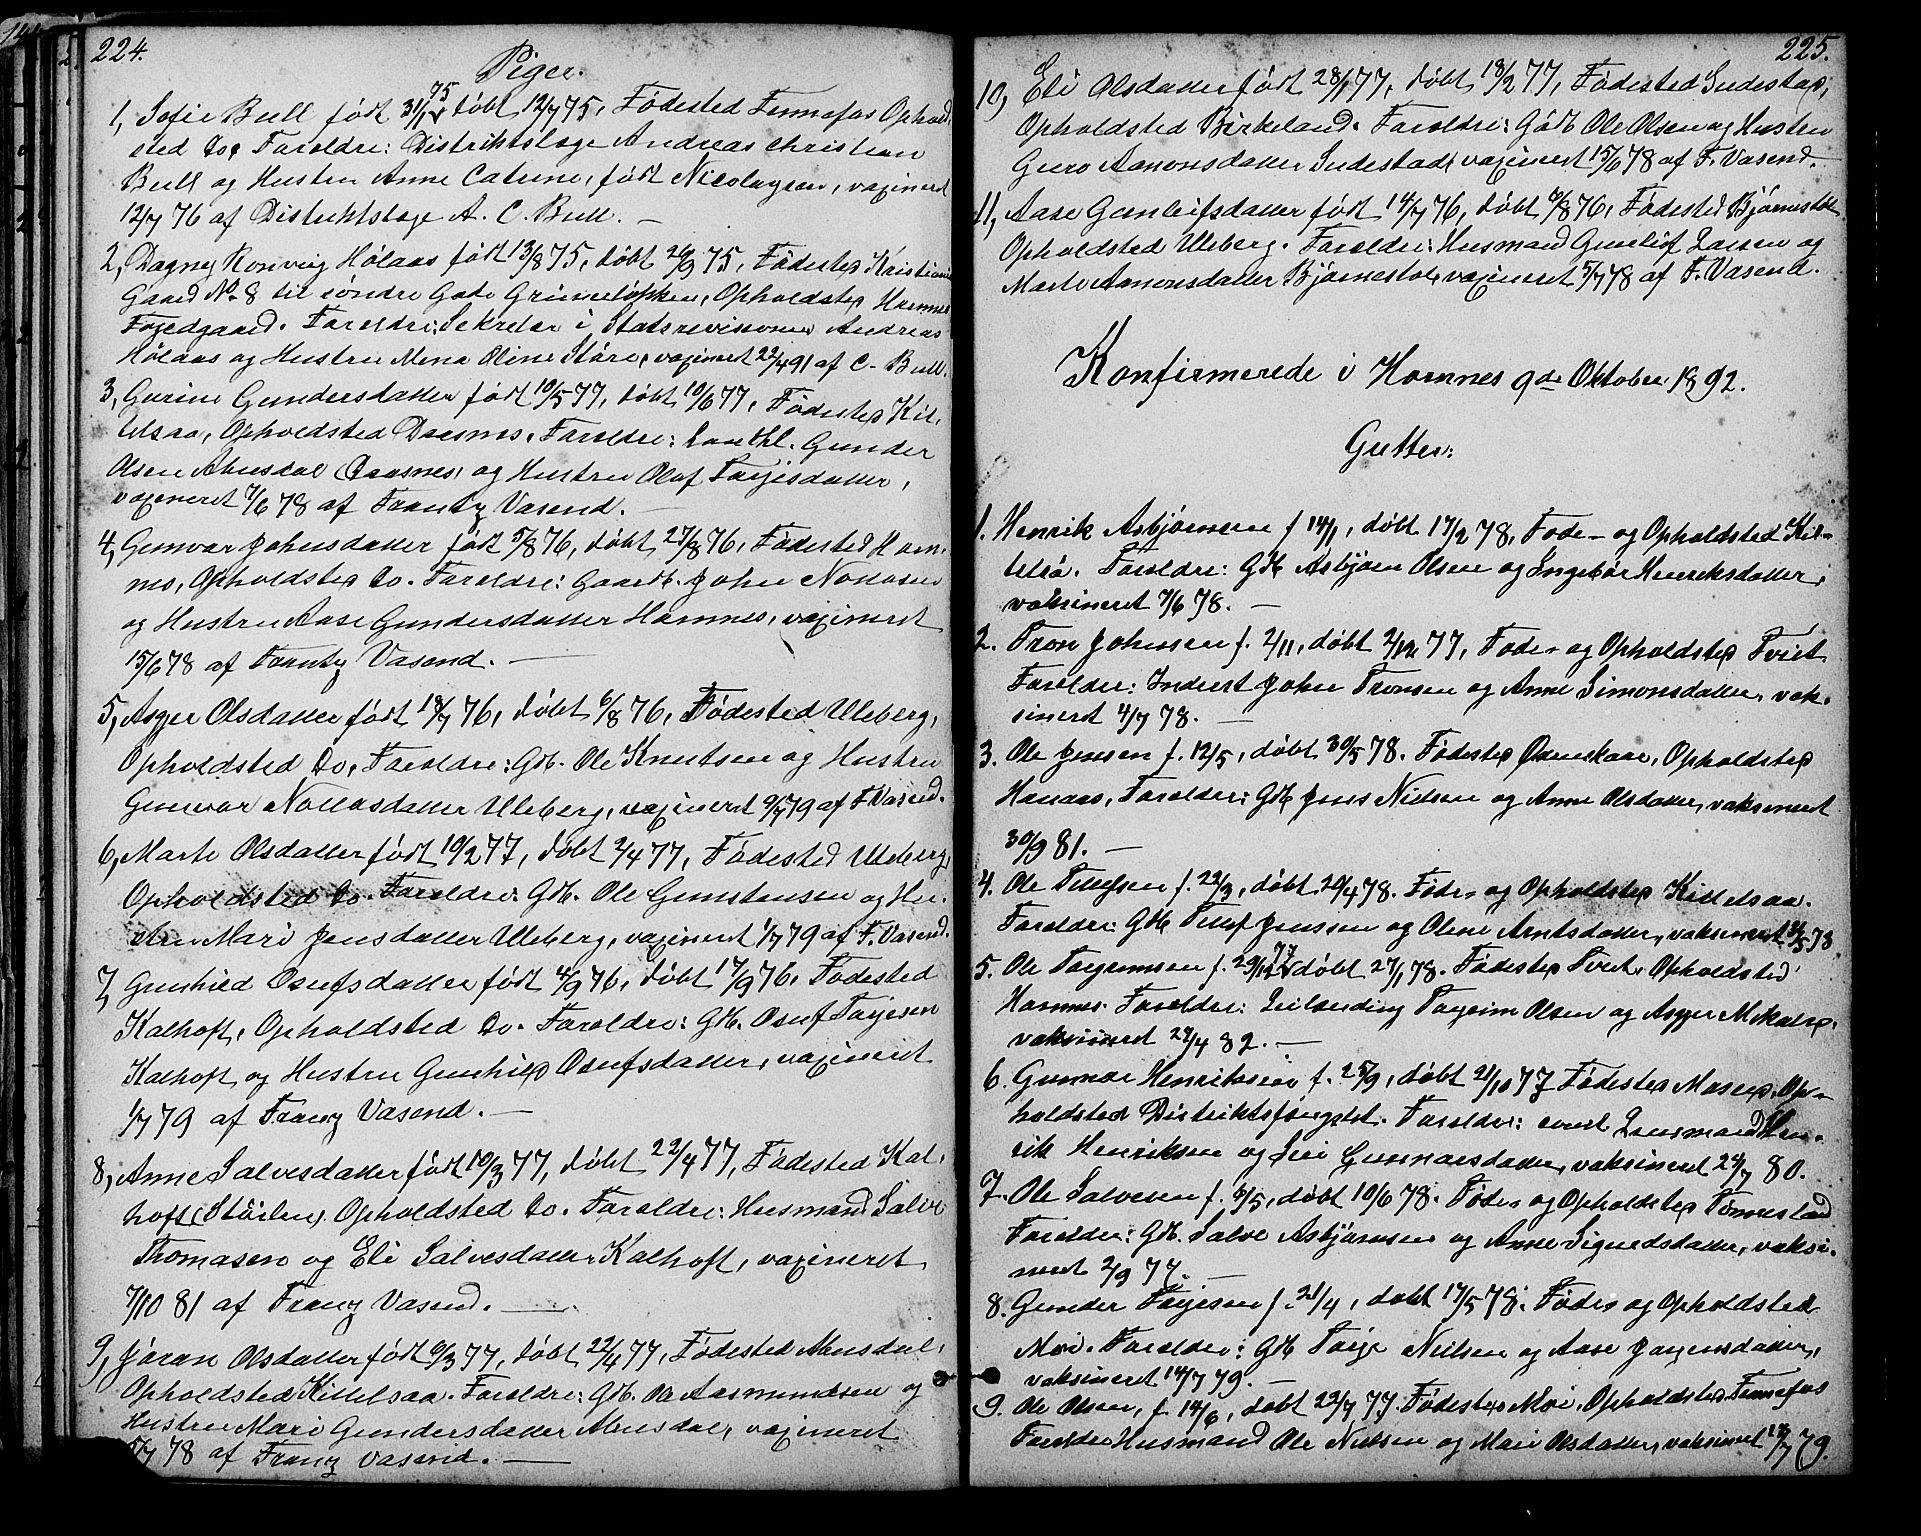 224.
Piger.
1, Sofie Bull født 31/1 75 døbt 12/7 75, Fødested Fennefos Ophold,
sted do, Foroldre: Distriktslæge Andreas Christian
Bull og Hustru Anne Catrine, født Nicolaysen, vaxineret
12/7 76 af Distriktslæge A. C. Bull. —
2, Dagny Ronvig Hølaas født 13/8 75, døbt 26/9 75, Fødested Kristiania
Gaard No 8 til søndre Gade Grünerløkken, Opholdsted Hornnes
Fogedgaard. Foroldre: Sekretær i Statsrevisionen Andreas
Hølaas og Hustru Mena Oline Støre, vaxineret 22/4 91 af C. Bull.
3, Gurine Gundersdatter født 10/5 77, døbt 10/6 77, Fødested Kit,
telsaa, Opholdsted Daasnes. Foroldre: Gunder
Olsen Abusdal Daasnes, og Hustru Olaf Torjesdatter,
vaxineret 7/6 78 af Frantz Vasend. —
4, Gunvor Johnsdatter født 5/8 76, døbt 27/8 76, Fødested Horn,
nes, Opholdsted do. Foroldre: Gaardb. John Nottosen
og Hustru Aase Gundersdatter Hornnes, vaxineret
15/6 78 af Frantz Vasend. —
5, Asger Olsdatter født 18/7 76, døbt 6/8 76, Fødested Uleberg,
Opholdsted do, Foroldre: Gdb. Ole Knutsen og Hustru
Gunvor Nottosdatter Uleberg, vaxineret 9/7 79 af F. Vasend.
6, Marte Olsdatter født 10/2 77, døbt 2/4 77, Fødested Uleberg,
Opholdsted do. Foroldre: Gdb. Ole Gunstensen og Hu,
stru Mari Jensdatter Uleberg, vaxineret 1/7 79 af F. Vasend.
7, Gunhild Osufsdatter født 4/9 76, døbt 17/9 76, Fødested
Kalhoft, Opholdsted do. Foroldre: Gdb. Osuf Torjesen
Kalhoft og Hustru Gunhild Osufsdatter, vaxineret
1/7 79 af Franz Vasend. —
8, Anne Salvesdatter født 10/3 77, døbt 22/4 77, Fødested Kal,
hoft (Støilen). Opholdsted do. Foroldre: Husmand Salve
Thomasen og Eli Salvesdatter Kalhoft, vaxineret
7/10 81 af Franz Vasend. —
9, Jøran Olsdatter født 9/3 77, døbt 22/4 77, Fødested Abusdal,
Opholdsted Kittelsaa. Foroldre: Gdb. Ole Aasmundsen og
Hustru Mari Gundersdatter Abusdal, vaxineret
5/7 78 af Franz Vasend. —
225.
10, Eli Olsdatter født 28/1 77, døbt 18/2 77, Fødested Sudestad,
Opholdsted Birkeland. Foroldre: Gdb Ole Olsen og Hustru
Guro Aamonsdatter Sudestad, vaxineret 15/6 78 af F. Vasend. —
11, Aase Gunleifsdatter født 14/7 76, døbt 6/8 76, Fødested Bjørnestøl
Opholdsted Uleberg. Foroldre: Husmand Gunleif Larsen og
Marte Aamonsdatter Bjørnestøl, vaxineret 5/7 78 af F. Vasend.
Konfirmerede i Hornnes 9de Oktober 1892.
Gutter:
1. Henrik Asbjørnsen f 14/1, døbt 17/2 78, Føde- og Opholdsted Kit-
telså. Foroldre: Gdb Asbjørn Olsen og Ingebor Henriksdatter,
vaksineret 7/6 78. —
2. Tron Johnsen f. 2/11, døbt 2/12 77, Føde- og Opholdsted Tveit
Foroldre: Inderst John Tronsen og Anne Simonsdatter, vak-
sineret 4/7 78. —
3. Ole Jensen f. 12/5, døbt 30/5 78. Fødested Øvreskaar, Opholdsted
Hanaas, Foroldre: Gdb Jens Nielsen og Anne Olsdatter, vaksineret
30/9 81. —
4. Ole Tellefsen f. 22/3, døbt 20/4 78. Føde- og Opholdsted Kittelsaa.
Foroldre: Gdb Tellef Jenssen og Olene Arntsdatter, vaksineret 78
5. Ole Torgrimsen f. 29/12 77 døbt 27/1 78. Fødested Tveit, Opholdsted
Hornnes. Foroldre: Leilænding Torgrim Olsen og Asger Mikalsd.
vaksineret 22/4 82. —
6. Gunnar Henriksen f. 25/9, døbt 21/10 77 Fødested Moseid, Op-
holdsted Distriktsfængslet. Foroldre: Lensmand Hen-
rik Henriksen og Siri Gunnarsdatter, vaksineret 24/7 80.
7. Ole Salvesen f. 6/5, døbt 10/6 78. Føde- og Opholdsted Tønnesland
Foroldre: Gdb. Salve Asbjørnsen og Anne Sigurdsdatter, vaksi-
neret 2/9 77. —
8. Gunder Torjesen f. 21/4, døbt 17/5 78. Føde- og Opholdsted
Moi. Foroldre: Gdb Torje Nielsen og Aase Jørgensdatter,
vaksineret 14/7 79. —
9. Ole Olsen, f. 14/6, døbt 22/7 77. Fødested Moi, Opholdsted Fennefos
Foroldre Husmand Ole Nielsen og Mari Olsdatter, vaksineret 14/7 79.